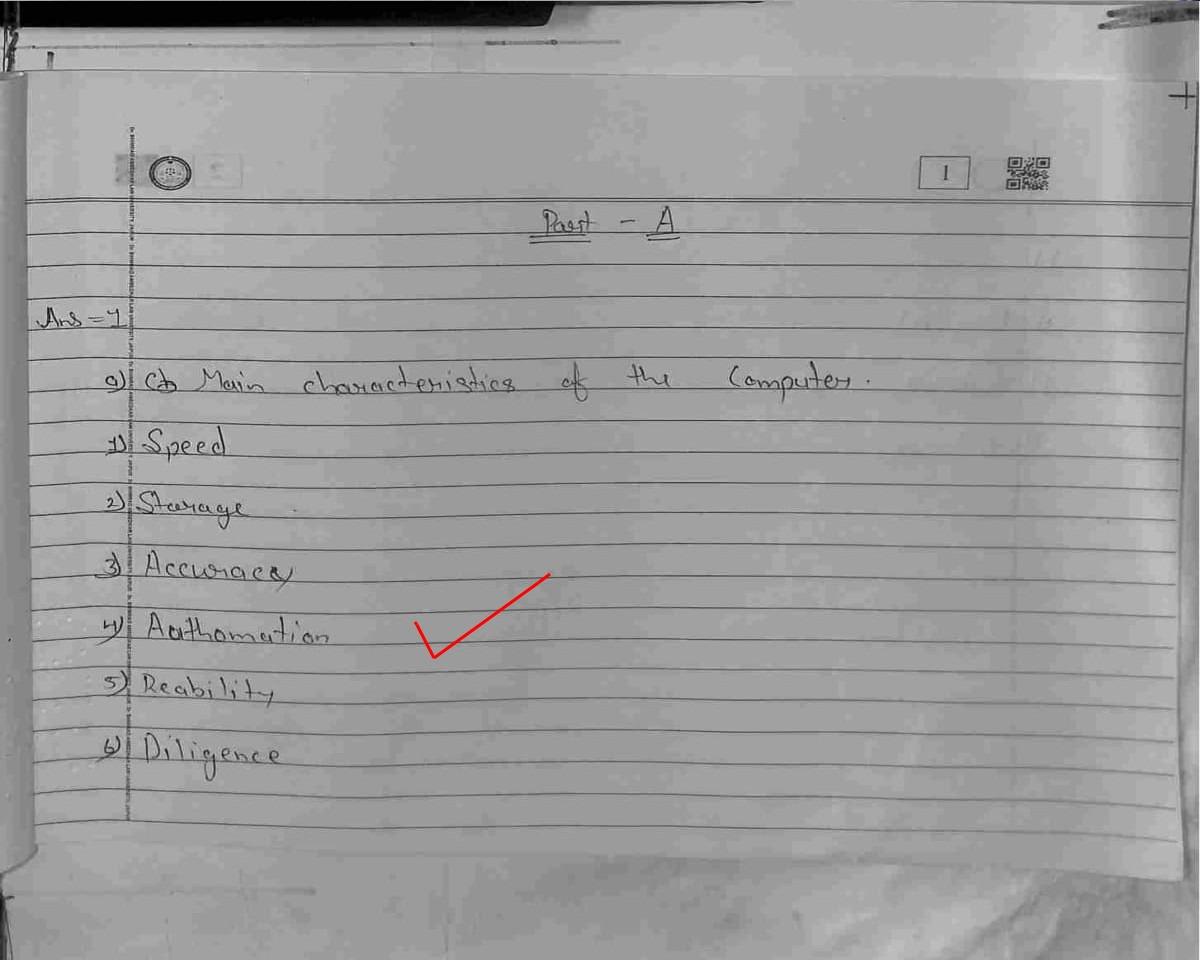 1
Part - A
Ans = 1
a) Main characteristics of the Computer.
1) Speed
2) Storage
3) Accuracy
4) Authomation
5) Reability
6) Diligence